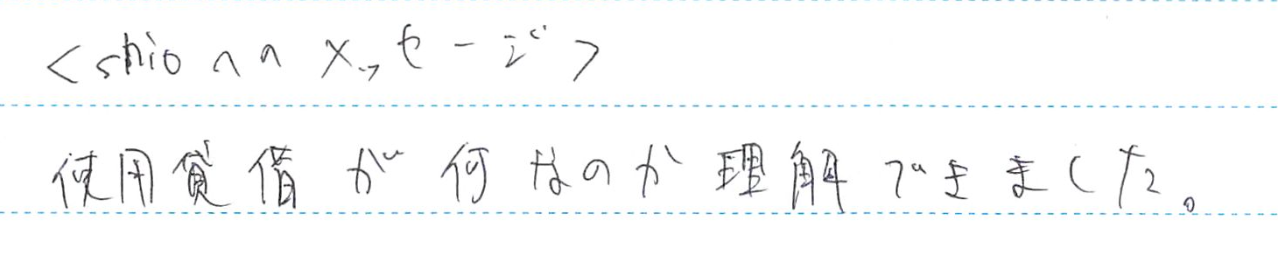 <shioへのメッセージ>
使用貸借が何なのか理解できました。